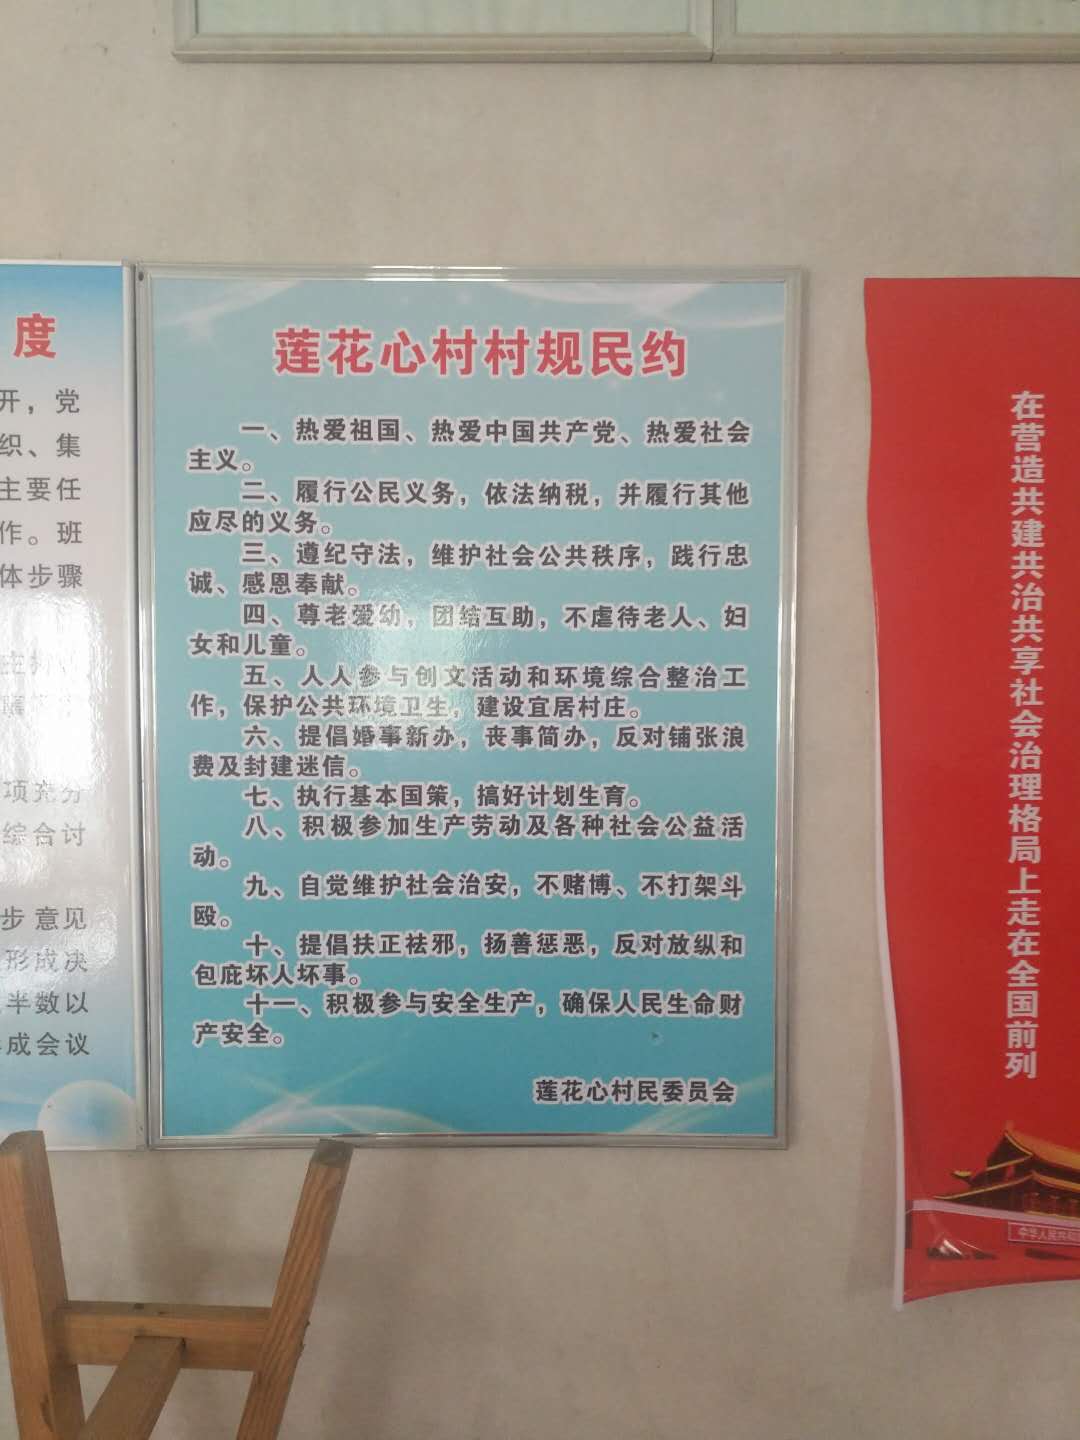 度
开，党
织、集
主要任
作。班
体步骤
项充分
综合讨
步意见
形成决
半数以
成会议
莲花心村村规民约
一、热爱祖国、热爱中国共产党、热爱社会
主义。
二、履行公民义务，依法纳税，并履行其他
应尽的义务。
三、遵纪守法，维护社会公共秩序，践行忠
诚、感恩奉献。
四、尊老爱幼，团结互助，不虐待老人、妇
女和儿童。
五、人人参与创文活动和环境综合整治工
作，保护公共环境卫生，建设宜居村庄。
六、提倡婚事新办，丧事简办，反对铺张浪
费及封建迷信。
七、执行基本国策，搞好计划生育。
八、积极参加生产劳动及各种社会公益活
动。
九、自觉维护社会治安，不赌博、不打架斗
殴。
十、提倡扶正祛邪，扬善惩恶，反对放纵和
包庇坏人坏事。
十一、积极参与安全生产，确保人民生命财
产安全。
莲花心村民委员会
在营造共建共治共享社会治理格局上走在全国前列
中华人民共和